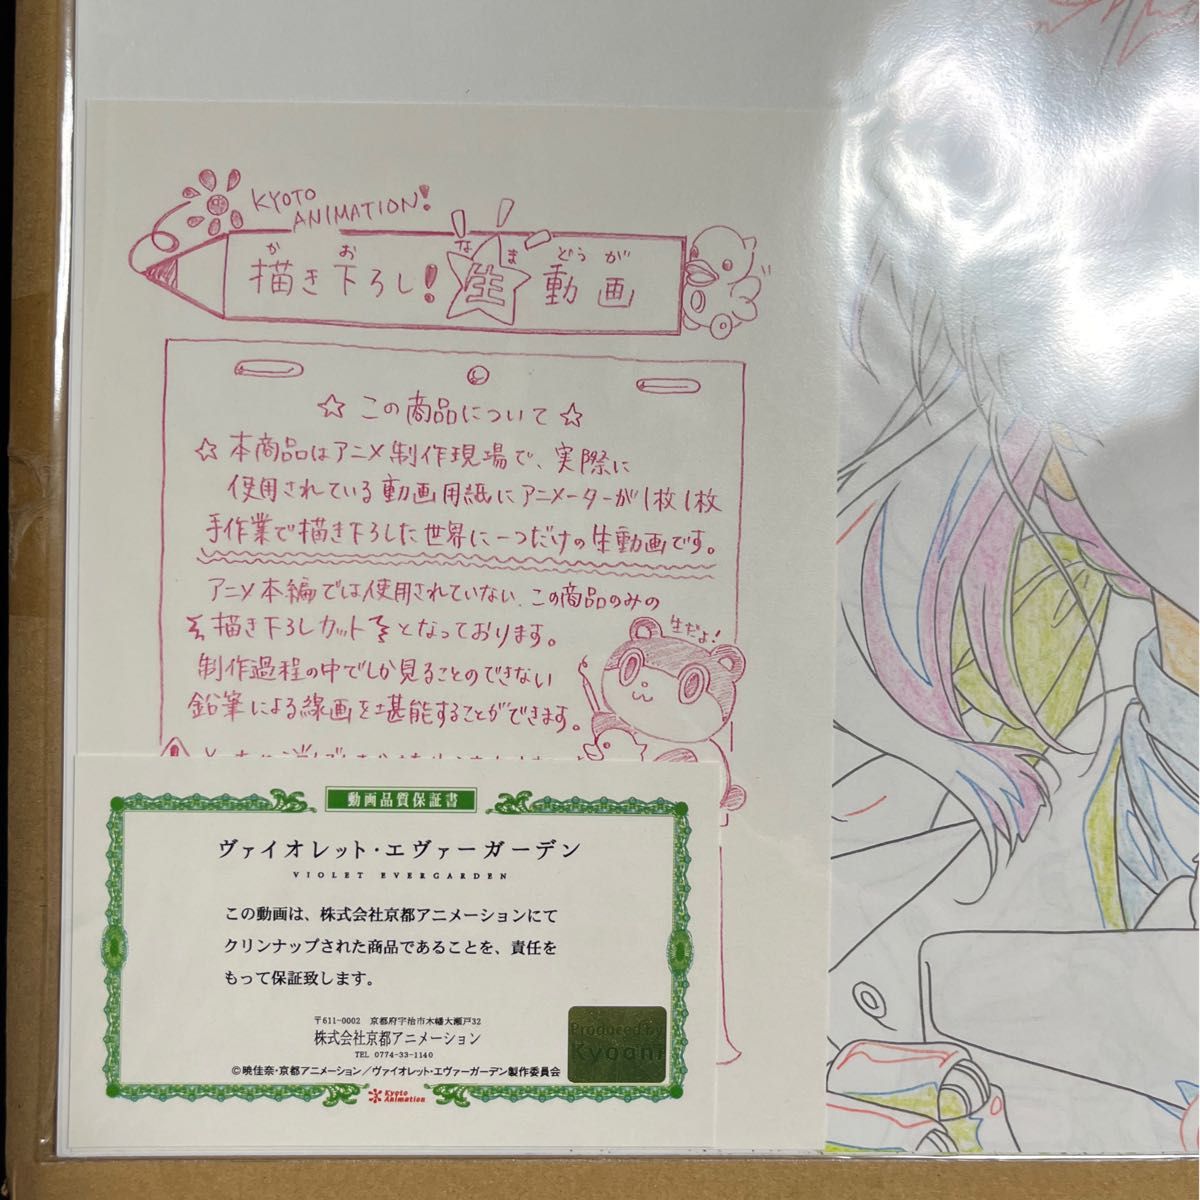 KYOTO
ANIMATION!
か お な ま どう が
描き下ろし!生動画
☆ この商品について ☆
☆ 本商品はアニメ制作現場で、実際に
使用されている動画用紙にアニメーターが1枚1枚
手作業で描き下ろした世界に一つだけの生動画です。
アニメ本編では使用されていない、この商品のみの
描き下ろしカットとなっております。
生だよ!
制作過程の中でしか見ることのできない
鉛筆による線画を堪能することができます。
動画品質保証書
ヴァイオレット・エヴァーガーデン
VIOLET EVERGARDEN
この動画は、株式会社京都アニメーションにて
クリンナップされた商品であることを、責任を
もって保証致します。
〒611-0002 京都府宇治市木幡大瀬戸32
株式会社京都アニメーション
TEL 0774-33-1140
©暁佳奈・京都アニメーション/ヴァイオレット・エヴァーガーデン製作委員会
Produced by
Kyoani
Kyoto
Animation